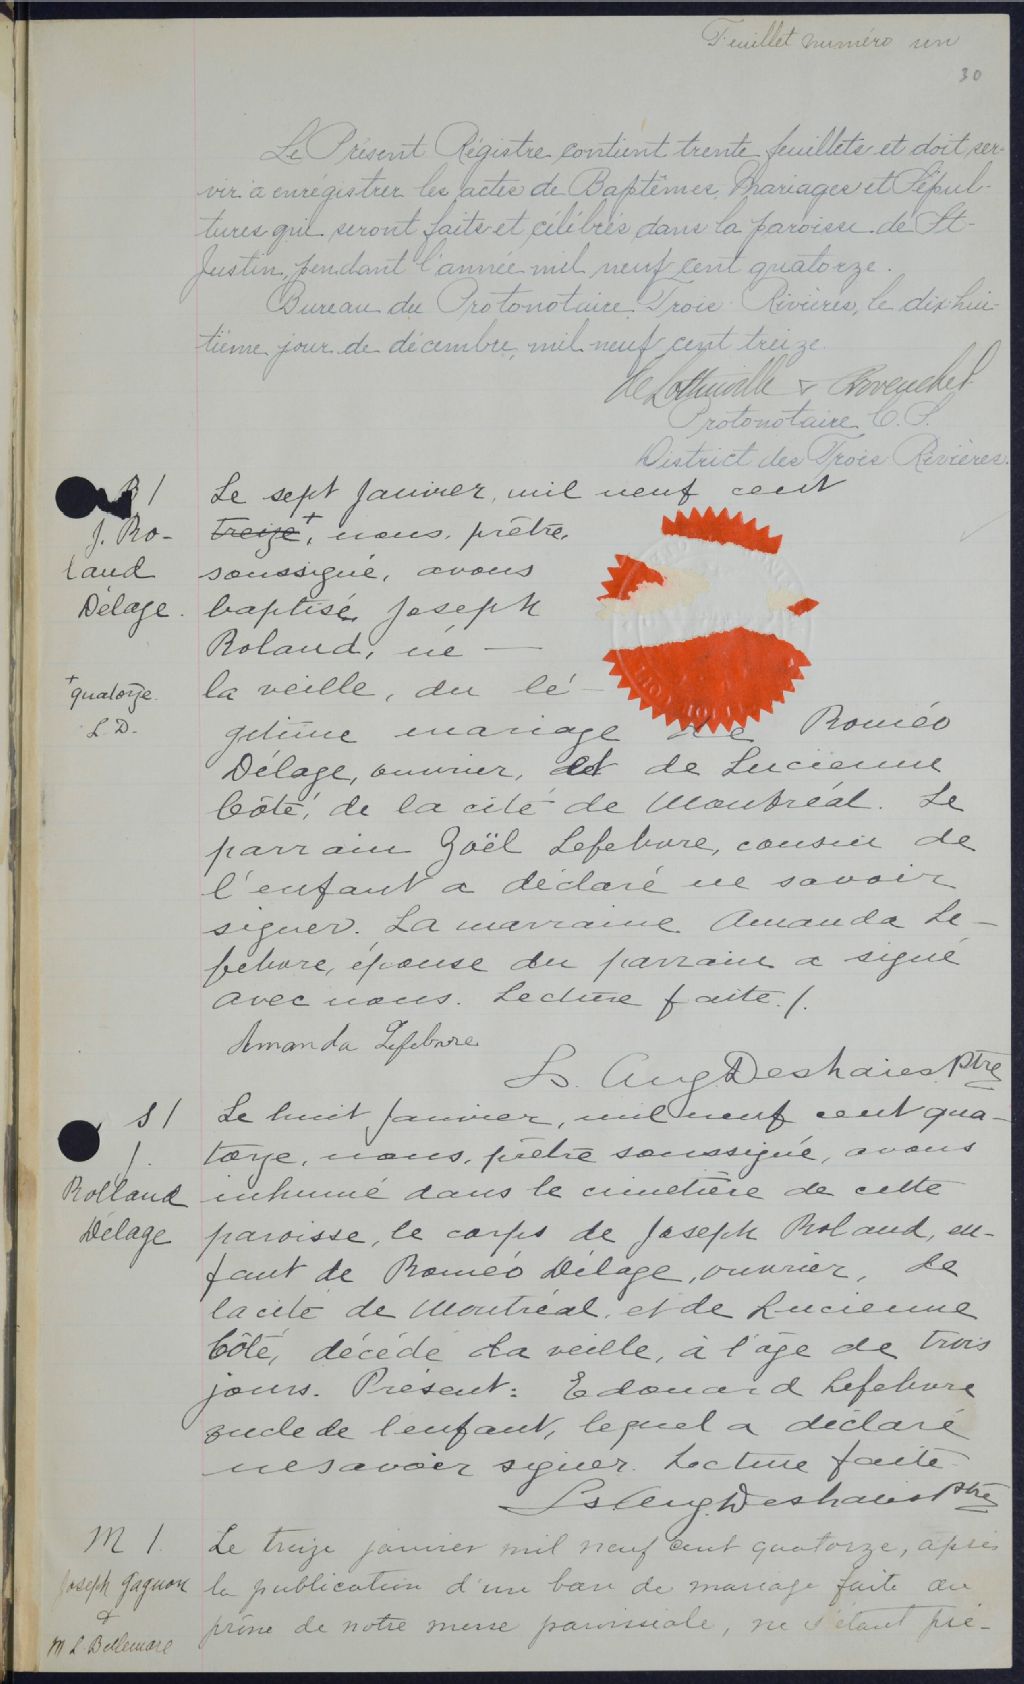 Feuillet numéro un
30
Le Présent Régistre contient trente feuillets et doit ser-
vir à enrégistrer les actes de Baptêmes, Mariages et Sépul-
tures qui seront faits et célébrés dans la paroisse de St-
Justin, pendant l'année mil neuf cent quatorze.
Bureau du Protonotaire Trois Rivières, le dix huit-
tième jour de décembre, mil neuf cent treize.
Protonotaire C. S.
District des Trois Rivières.
B 1
J. Ro-
land
Délage.
+ quatorze
L. D.
Le sept Janvier, mil neuf cent
treize +, nous, prêtre
soussigné, avons
baptisé Joseph
Roland, né —
la veille, du lé-
gitime mariage de Roméo
Délage, ouvrier, et de Lucienne
Côté, de la cité de Montréal. Le
parrain Joël Lefebvre, cousin de
l'enfant a déclaré ne savoir
signer. La marraine Amanda Le-
febvre, épouse du parrain a signé
avec nous. Lecture faite./.
Amanda Lefebvre
Ls. Aug. Deshaies Ptre
S 1
J.
Rolland
Délage
Le huit Janvier, mil neuf cent qua-
torze, nous, prêtre soussigné, avons
inhumé dans le cimetière de cette
paroisse, le corps de Joseph Roland, en-
fant de Roméo Délage, ouvrier, de
la cité de Montréal, et de Lucienne
Côté, décédé la veille, à l'âge de trois
jours. Présent: Edouard Lefebvre
oncle de l'enfant, lequel a déclaré
ne savoir signer. Lecture faite
Ls Aug. Deshaies Ptre
M 1.
Joseph Gagnon
&
M L Bellemare
Le treize janvier mil neuf cent quatorze, après
la publication d'un ban de mariage faite au
prône de notre messe paroissiale, ne s'étant pré-